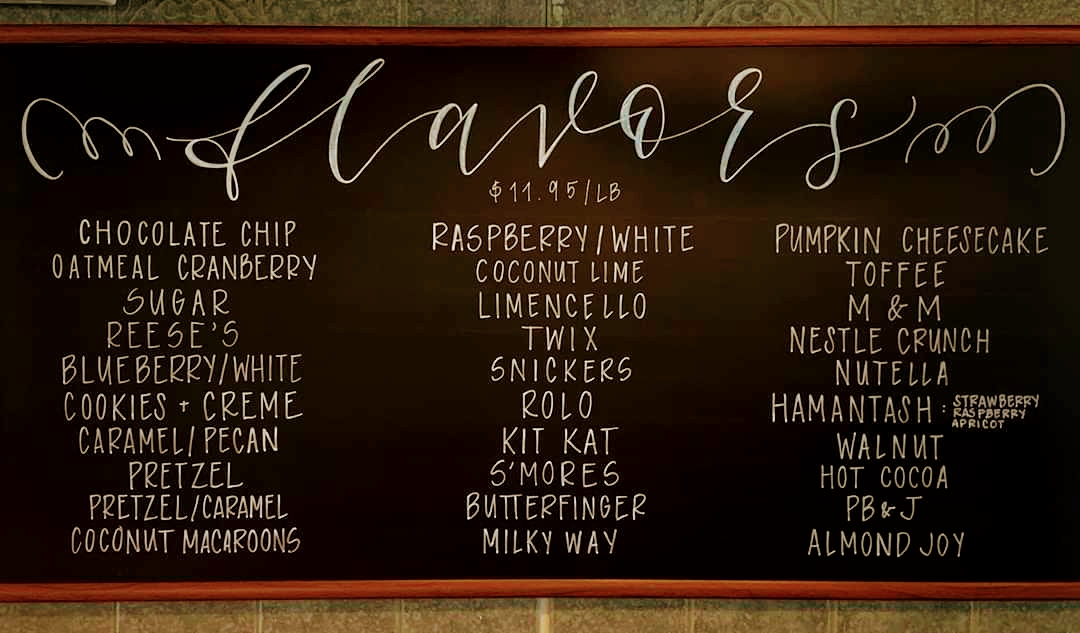 flavors
$11.95/LB
CHOCOLATE CHIP
OATMEAL CRANBERRY
SUGAR
REESE'S
BLUEBERRY/WHITE
COOKIES + CREME
CARAMEL/PECAN
PRETZEL
PRETZEL/CARAMEL
COCONUT MACAROONS
RASPBERRY/WHITE
COCONUT LIME
LIMENCELLO
TWIX
SNICKERS
ROLO
KIT KAT
S'MORES
BUTTERFINGER
MILKY WAY
PUMPKIN CHEESECAKE
TOFFEE
M & M
NESTLE CRUNCH
NUTELLA
HAMANTASH : STRAWBERRY
RASPBERRY
APRICOT
WALNUT
HOT COCOA
PB & J
ALMOND JOY